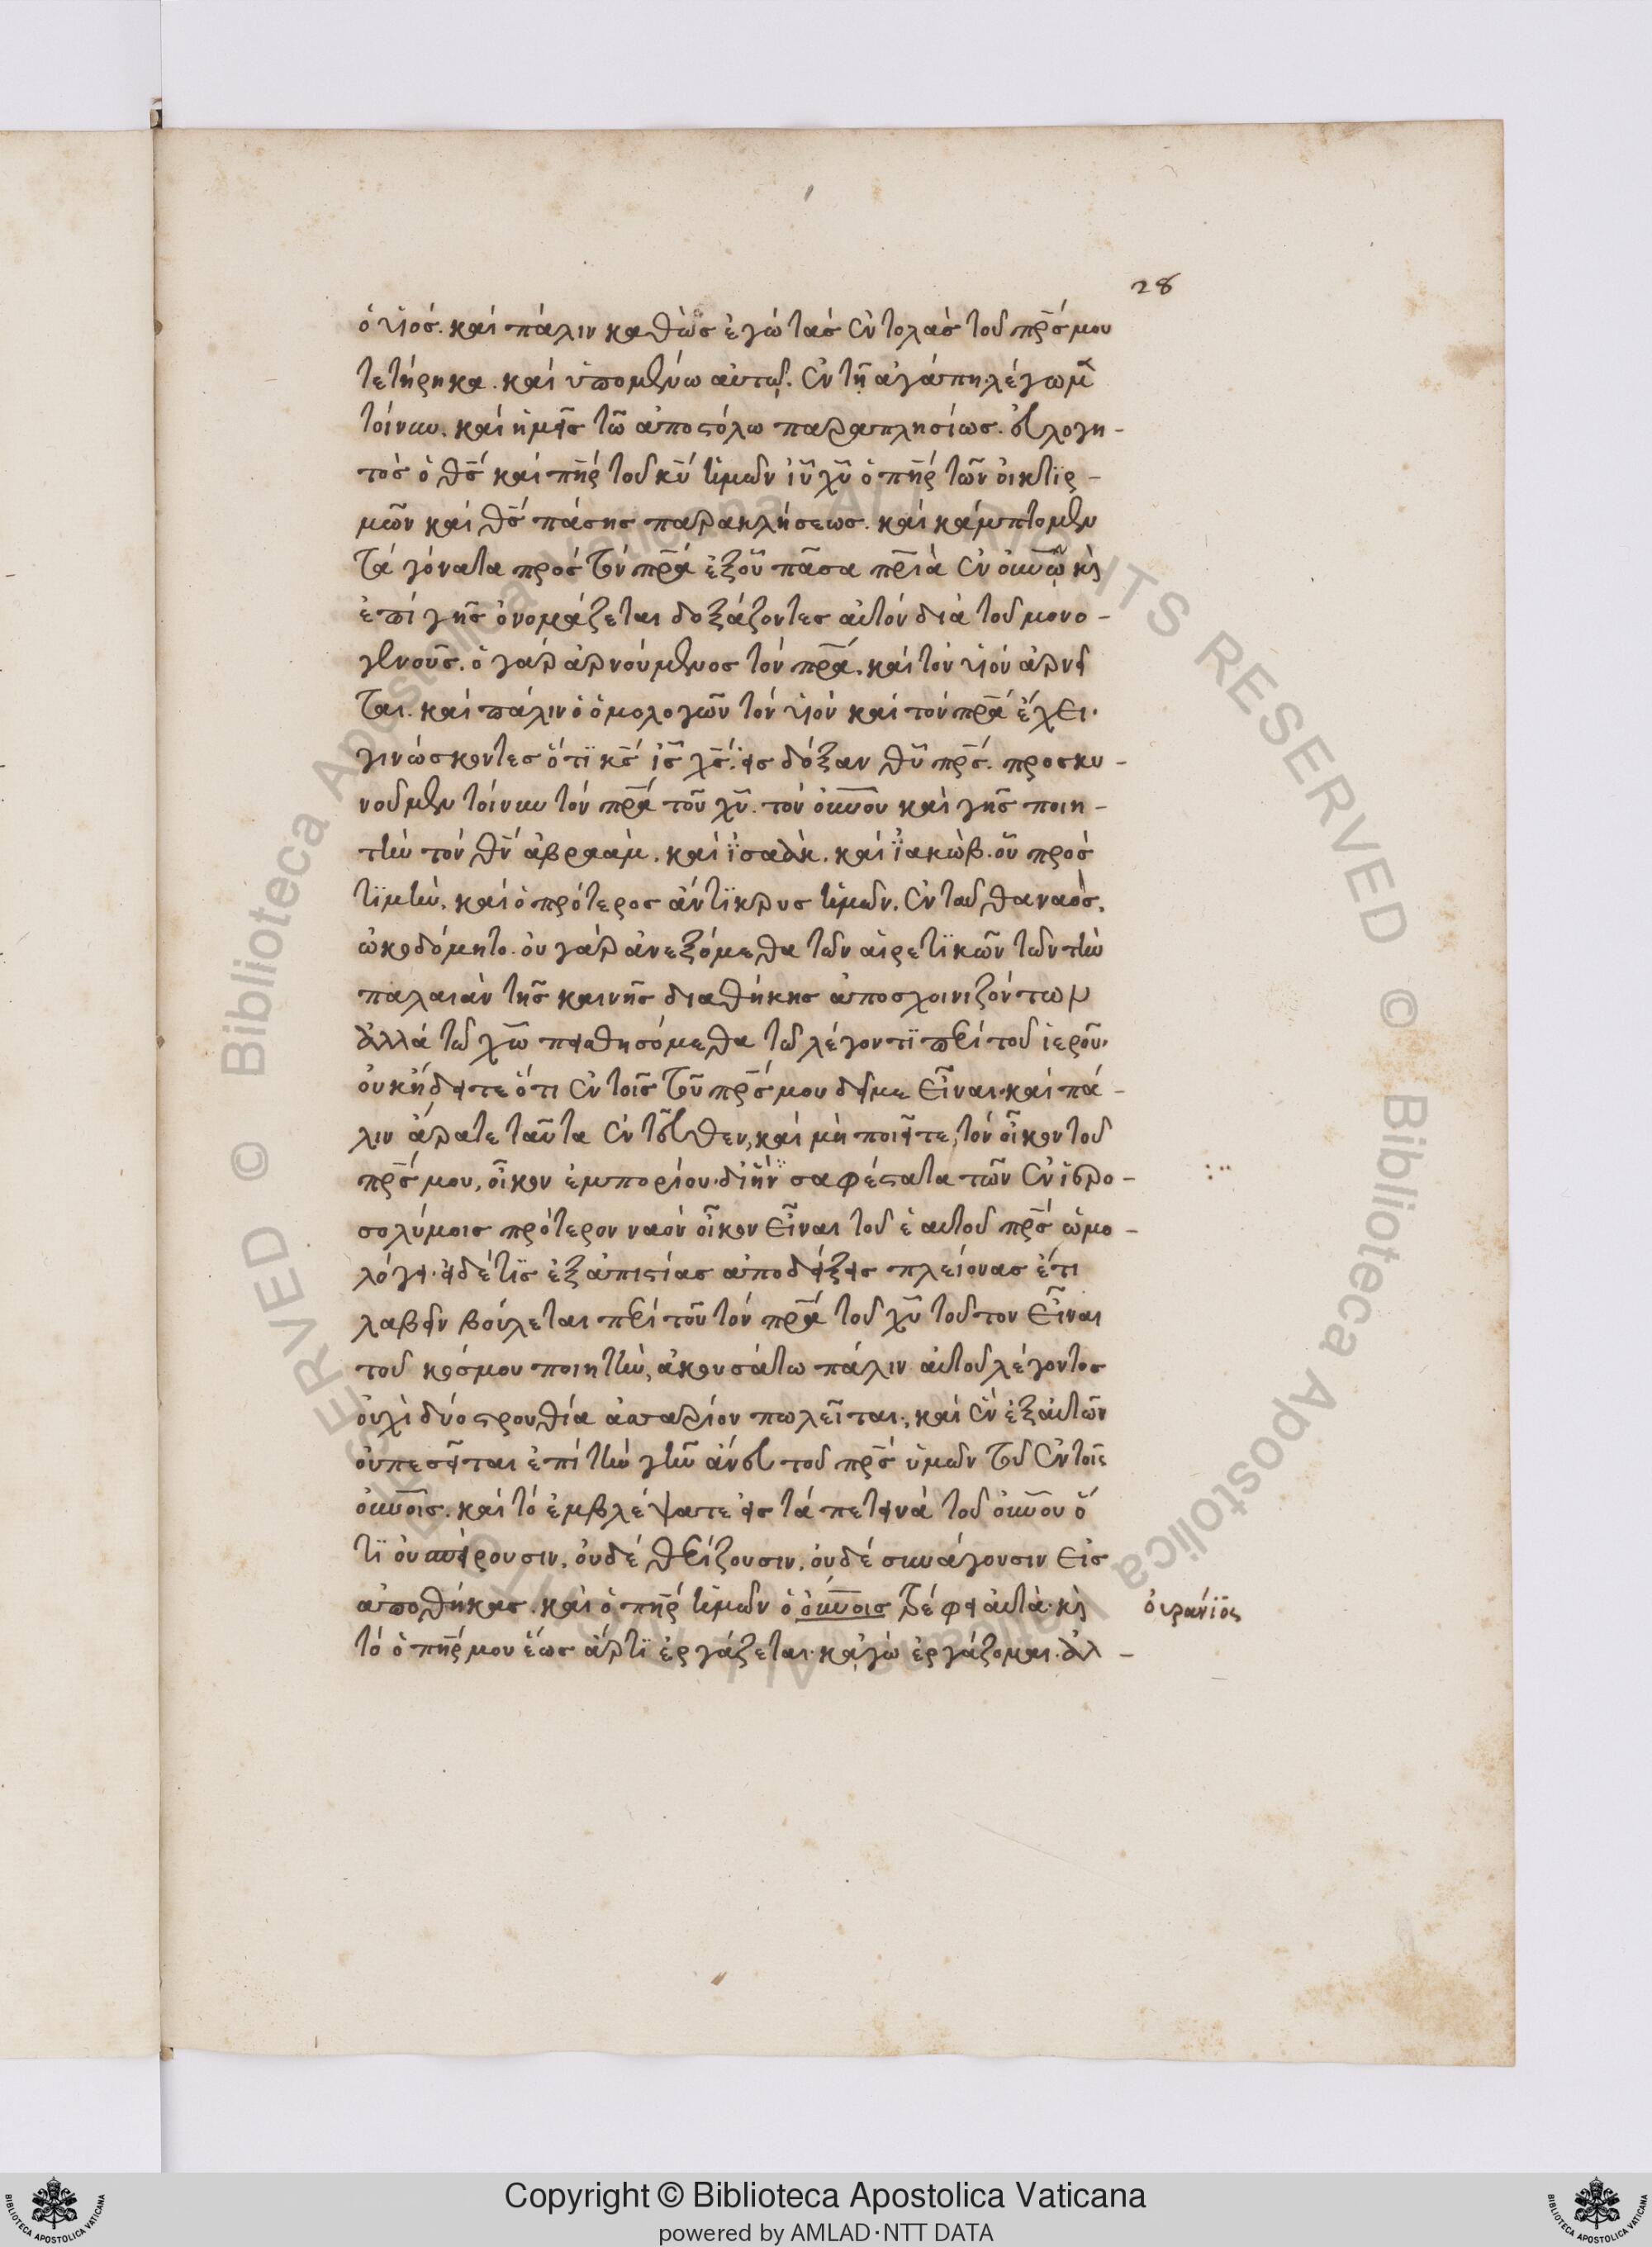 28
ὁ υἱός. καὶ πάλιν καθὼς ἐγὼ τὰς ἐντολὰς τοῦ πρ̅ς μου
τετήρηκα. καὶ ὑπομένω αὐτῷ. ἐν τῇ ἀγάπη. λέγωμ̅
τοίνυν. καὶ ἡμεῖς τῶ ἀποστόλω παραπλησίως. εὐλογη-
τὸς ὁ θ̅ς καὶ πη̅ρ τοῦ κ̅υ ἡμῶν ἰ̅υ χ̅υ ὁ πη̅ρ τῶν οἰκτϊρ-
μῶν καὶ θ̅ς πάσης παρακλήσεως. καὶ κάμπτομεν
τὰ γόνατα πρὸς τὸν πρ̅α ἐξοῦ πᾶσα πρ̅ιὰ ἐν οὐν̅ῷ κὶ
ἐπὶ γῆς ὀνομάζεται δοξάζοντες αὐτὸν διὰ τοῦ μονο-
γενοῦς. ὁ γὰρ ἀρνούμενος τὸν πρ̅α. καὶ τὸν υἱὸν ἀρνεῖ
ται. καὶ πάλιν ὁ ὁμολογῶν τὸν υἱὸν καὶ τὸν πρ̅α ἔχει.
γινώσκοντες ὅτϊ κ̅ς ἰ̅ς χ̅ς. εἰς δόξαν θ̅υ πρ̅ς. προσκυ-
νοῦμεν τοίνυν τὸν πρ̅α τοῦ χ̅υ. τὸν οὐν̅ου καὶ γῆς ποιη-
τὴν τὸν θ̅ν ἀβραάμ. καὶ ἰσαὰκ. καὶ ἰακὼβ. οὗ πρὸς
τϊμὴν. καὶ ὁ πρότερος ἀντϊκρυς ἡμῶν. ἐνταῦθα ναὸς.
ὠκοδόμητο. οὐ γὰρ ἀνεξόμεθα τῶν αἱρετϊκῶν τῶν τὴν
παλαιὰν τῆς καινῆς διαθήκης ἀποσχοινιζόντων
ἀλλὰ τῶ χ̅ω πειθησόμεθα τῶ λέγοντϊ περὶ τοῦ ἱεροῦ.
οὐκ ἤδειτε ὅτι ἐν τοῖς τοῦ πρ̅ς μου δεῖ με εἶναι. καὶ πά-
λιν ἄρατε ταῦτα ἐντεῦθεν, καὶ μὴ ποιεῖτε, τὸν οἶκον τοῦ
πρ̅ς μου, οἶκον ἐμπορίου. δι ἣν σαφέστατα τῶν ἐν ἱερο-
σολύμοις πρότερον ναὸν οἶκον εἶναι τοῦ ἑαυτοῦ πρ̅ς ὡμο-
λόγει. εἰ δέ τϊς ἐξ ἀπιστίας ἀποδείξεις πλείονας ἔτι
λαβεῖν βούλεται περὶ τοῦ τὸν πρ̅α τοῦ χ̅υ τοῦτον εἶναι
τοῦ κόσμου ποιητὴν, ἀκουσάτω πάλιν αὐτοῦ λέγοντος
οὐχὶ δύο στρουθία ἀσσαρίου πωλεῖται; καὶ ἓν ἐξ αὐτῶν
οὐ πεσεῖται ἐπὶ τὴν γῆν ἄνευ τοῦ πρ̅ς ὑμῶν τοῦ ἐν τοῖς
οὐν̅οις. καὶ τὸ ἐμβλέψατε εἰς τὰ πετεινὰ τοῦ οὐν̅ου ὅ
τϊ οὐ σπείρουσιν, οὐδὲ θερίζουσιν, οὐδὲ συνάγουσιν εἰς
ἀποθήκας. καὶ ὁ πη̅ρ ἡμῶν ὁ οὐν̅οις τρέφει αὐτὰ. κὶ
οὐράνϊος
τὸ ὁ πη̅ρ μου ἕως ἄρτϊ ἐργάζεται. κἀγὼ ἐργάζομαι. ἀλ-
Copyright © Biblioteca Apostolica Vaticana
powered by AMLAD·NTT DATA